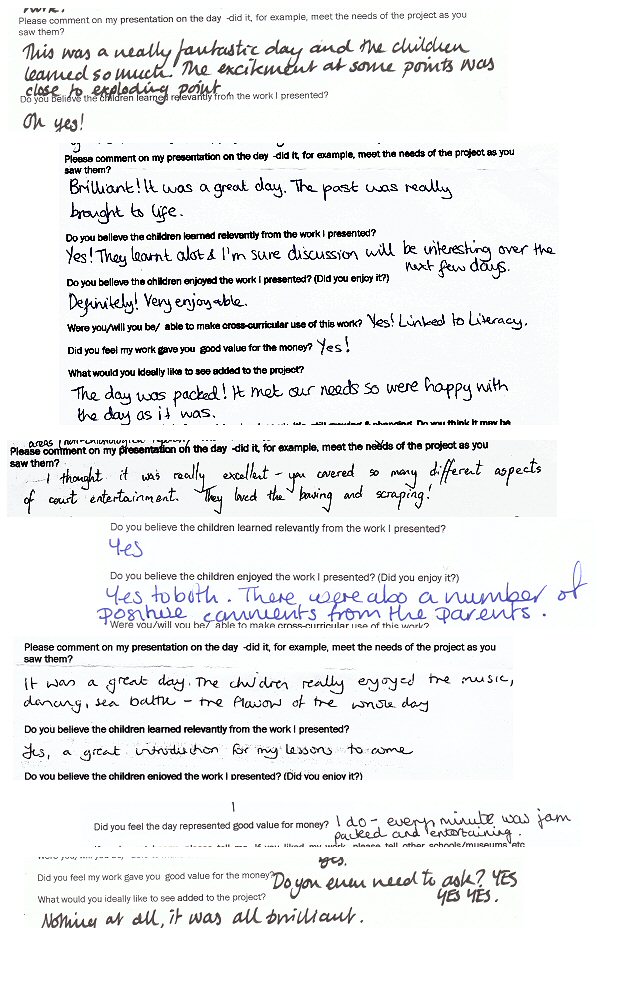 Please comment on my presentation on the day -did it, for example, meet the needs of the project as you
saw them?
This was a really fantastic day and the children
learned so much. The excitement at some points was
close to exploding point.
Do you believe the children learned relevantly from the work I presented?
Oh yes!
Please comment on my presentation on the day -did it, for example, meet the needs of the project as you
saw them?
Brilliant! It was a great day. The past was really
brought to life.
Do you believe the children learned relevently from the work I presented?
Yes! They learnt alot & I'm sure discussion will be interesting over the
next few days.
Do you believe the children enjoyed the work I presented? (Did you enjoy it?)
Definitely! Very enjoyable.
Were you/will you be/ able to make cross-curricular use of this work? Yes! Linked to Literacy.
Did you feel my work gave you good value for the money? Yes!
What would you ideally like to see added to the project?
The day was packed! It met our needs so were happy with
the day as it was.
Please comment on my presentation on the day -did it, for example, meet the needs of the project as you
saw them?
I thought it was really excellent - you covered so many different aspects
of court entertainment. They loved the bowing and scraping!
Do you believe the children learned relevantly from the work I presented?
Yes
Do you believe the children enjoyed the work I presented? (Did you enjoy it?)
Yes to both. There were also a number of
positive comments from the parents.
Were you/will you be/ able to make cross-curricular use of this work?
Please comment on my presentation on the day -did it, for example, meet the needs of the project as you
saw them?
It was a great day. The children really enjoyed the music,
dancing, sea battle - the flavour of the whole day
Do you believe the children learned relevantly from the work I presented?
Yes, a great introduction for my lessons to come
Do you believe the children enjoyed the work I presented? (Did you enjoy it?)
Did you feel the day represented good value for money? I do - every minute was jam
packed and entertaining.
please tell other schools/museums etc
yes.
Did you feel my work gave you good value for the money? Do you even need to ask? YES
YES YES.
What would you ideally like to see added to the project?
Nothing at all, it was all brilliant.